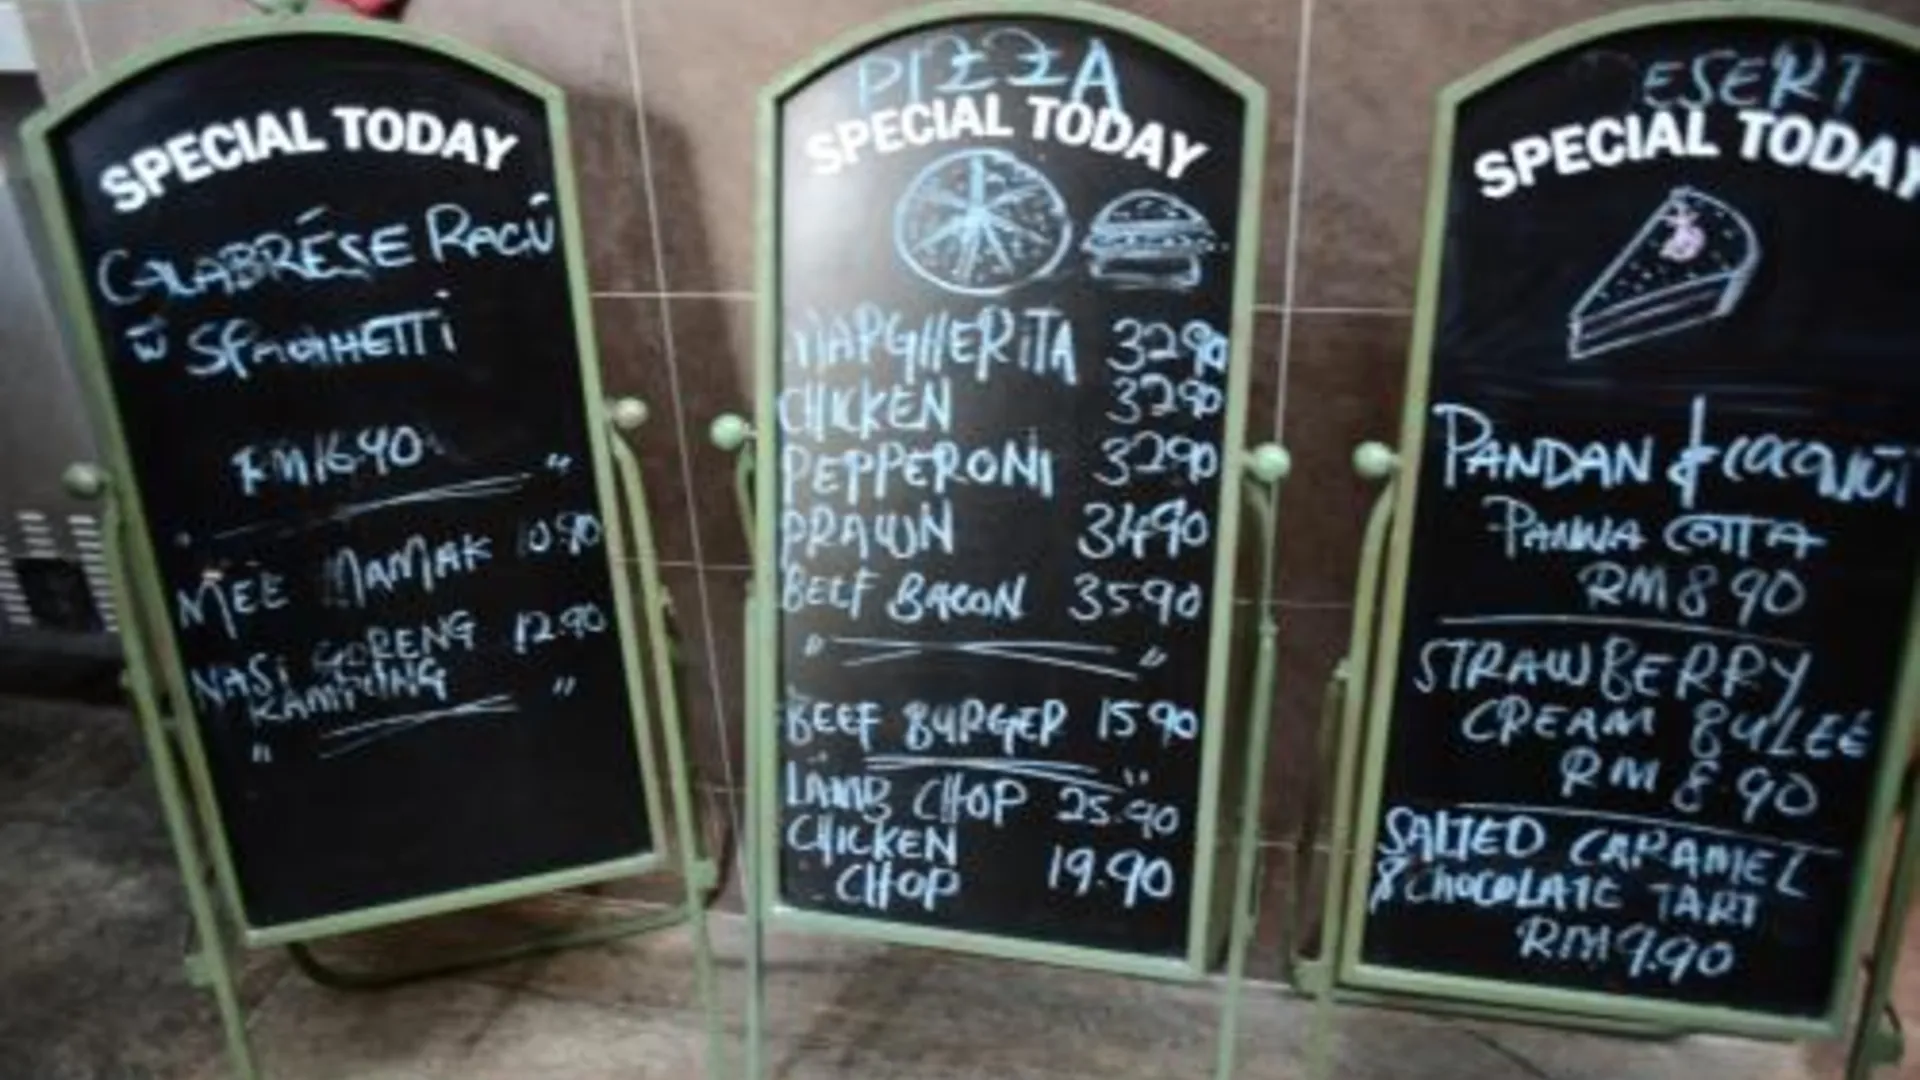 SPECIAL TODAY
CALABRÉSE RAGÚ
W SPAGHETTI
RM 16.90
MEE MAMAK 10.90
NASI GORENG 12.90
KAMPUNG
PIZZA
SPECIAL TODAY
MARGHERITA 32 90
CHICKEN 32 90
PEPPERONI 32 90
PRAWN 34 90
BEEF BACON 35 90
BEEF BURGER 15 90
LAMB CHOP 25.90
CHICKEN
CHOP 19.90
ESERT
SPECIAL TODAY
PANDAN & COCONUT
PANNA COTTA
RM 8 90
STRAWBERRY
CREAM BULEE
RM 8.90
SALTED CARAMEL
& CHOCOLATE TART
RM 9.90